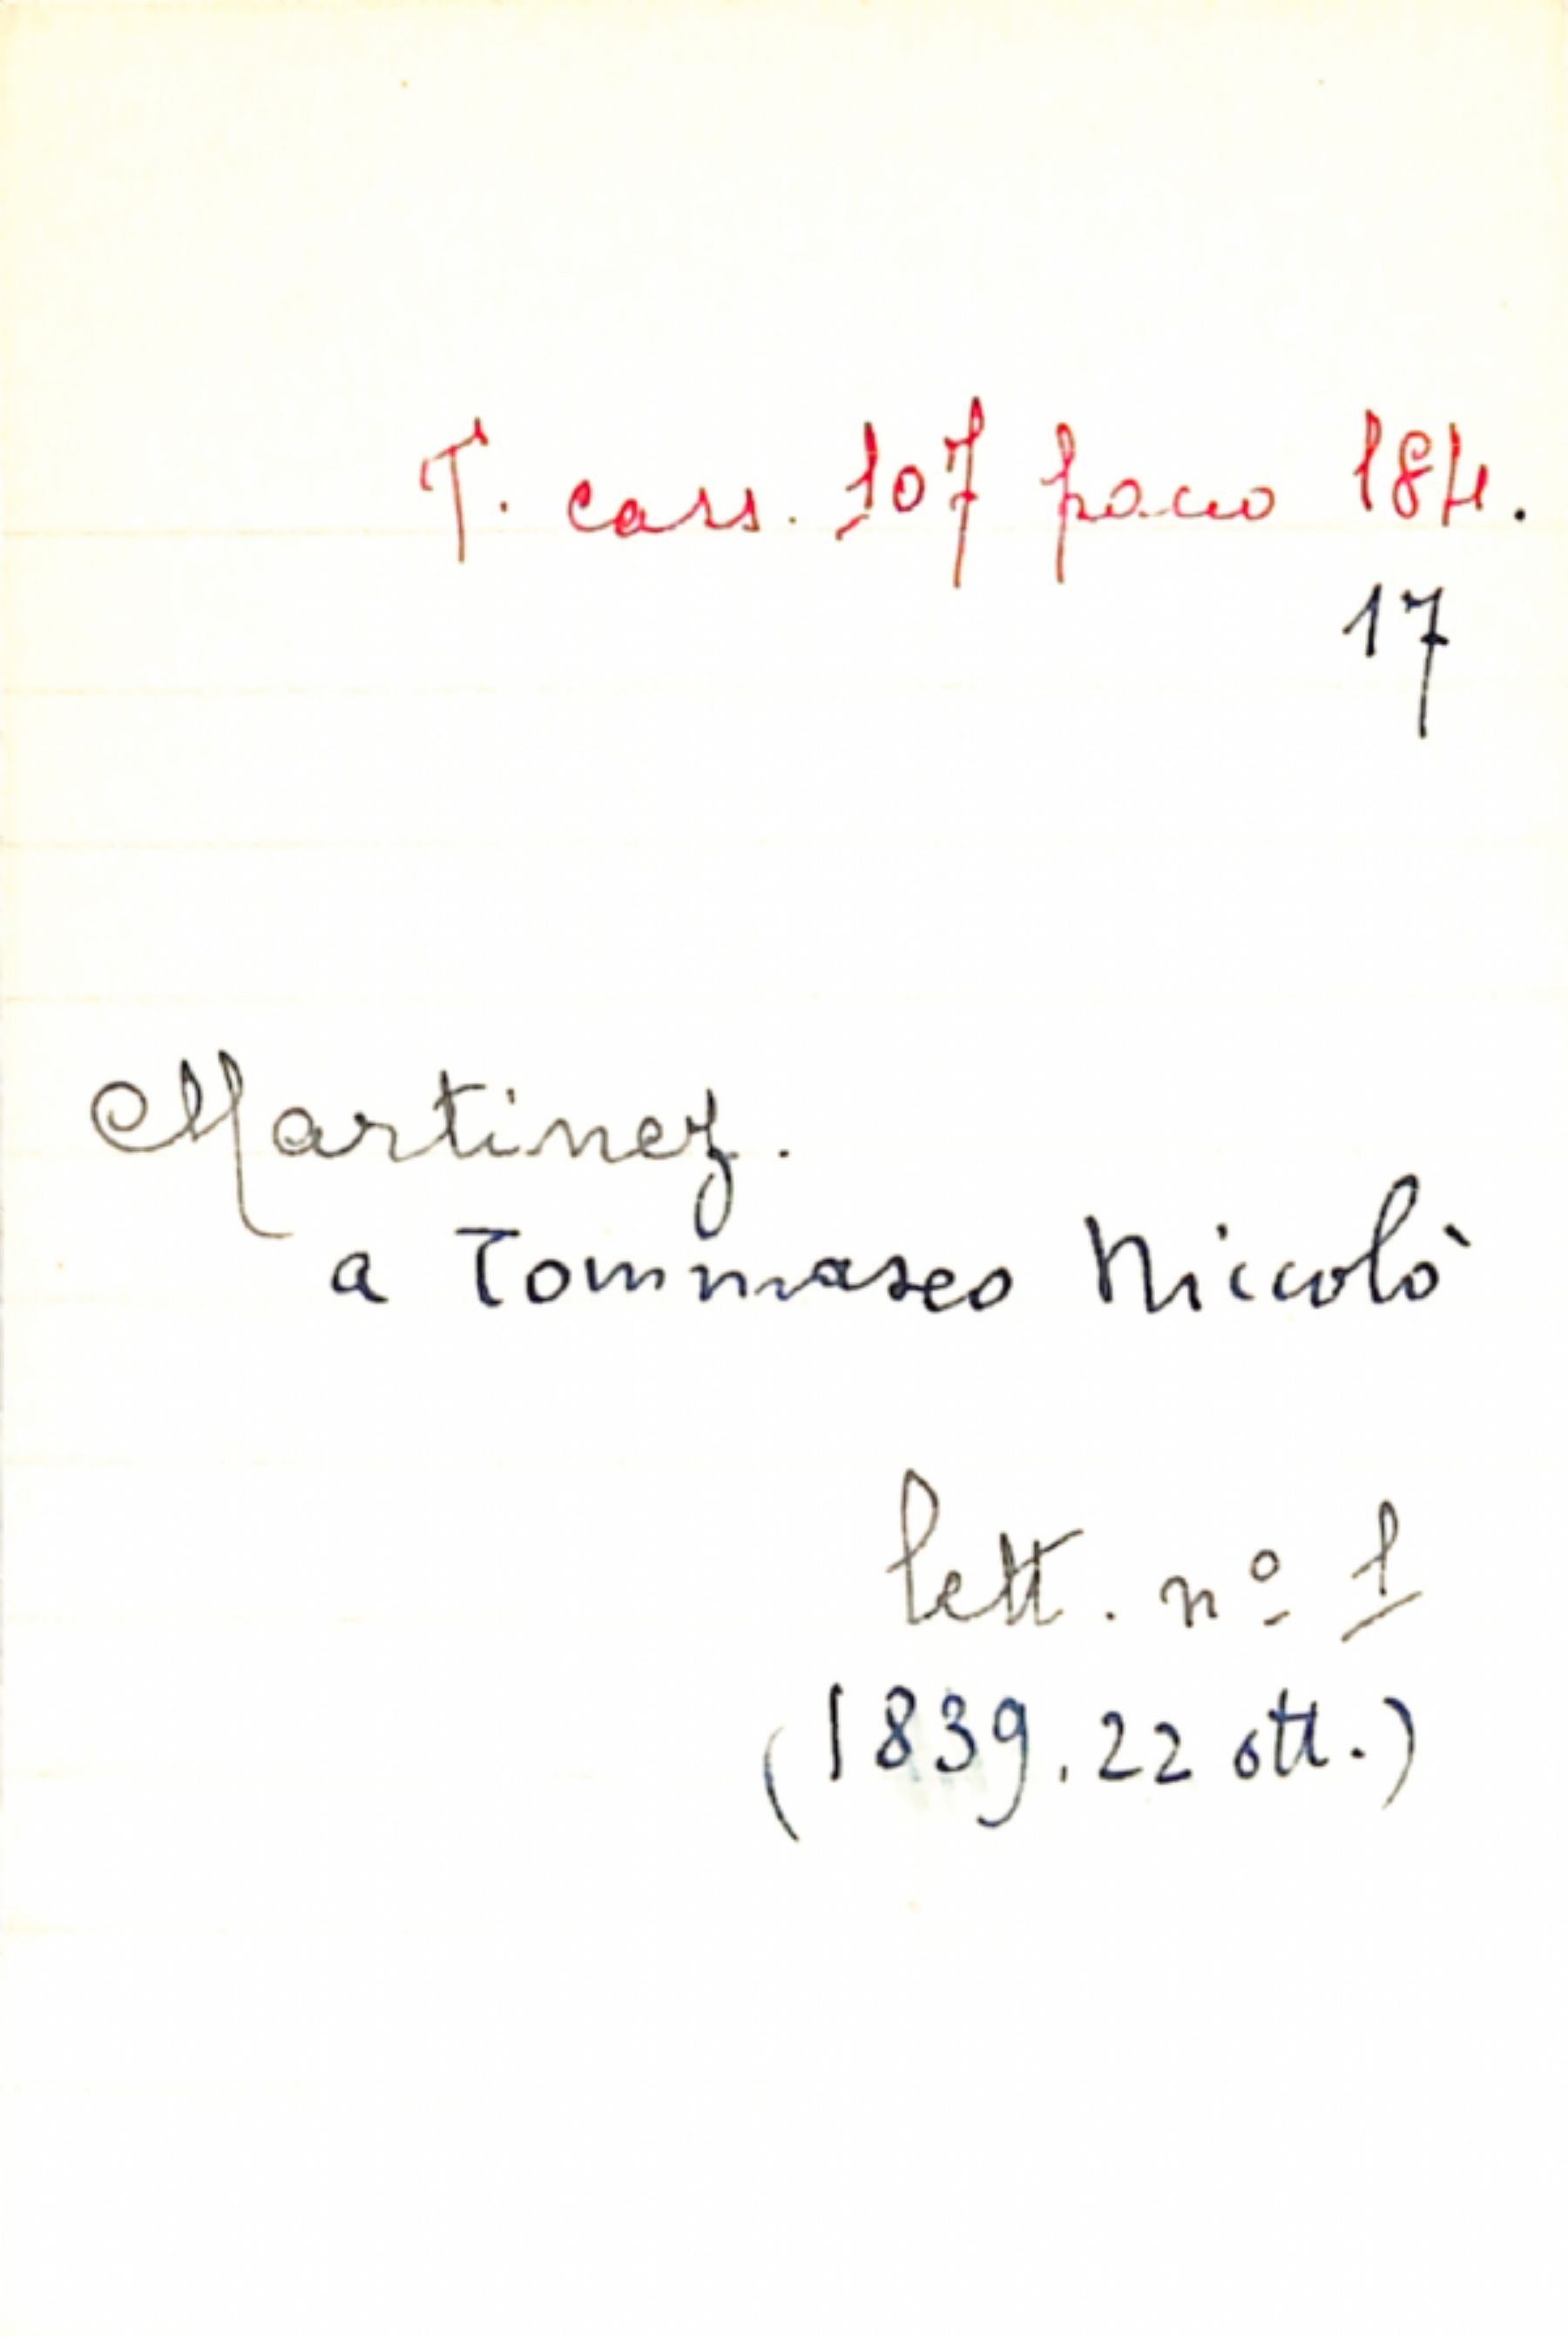 T. cass. 107 pacco 184.
17
Martinez.
a Tommaseo Niccolò
lett. nº 1
(1839. 22 ott.)